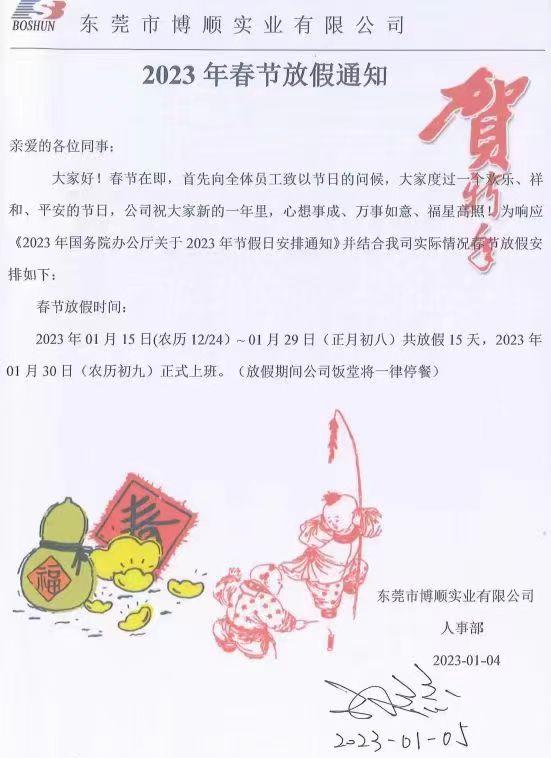 BOSHUN 东莞市博顺实业有限公司
2023 年春节放假通知
贺新年
亲爱的各位同事：
大家好！春节在即，首先向全体员工致以节日的问候，大家度过一个欢乐、祥
和、平安的节日，公司祝大家新的一年里，心想事成、万事如意、福星高照！为响应
《2023 年国务院办公厅关于 2023 年节假日安排通知》并结合我司实际情况春节放假安
排如下：
春节放假时间：
2023 年 01 月 15 日(农历 12/24）~ 01 月 29 日（正月初八）共放假 15 天，2023 年
01 月 30 日（农历初九）正式上班。（放假期间公司饭堂将一律停餐）
春
福
东莞市博顺实业有限公司
人事部
2023-01-04
2023-01-05